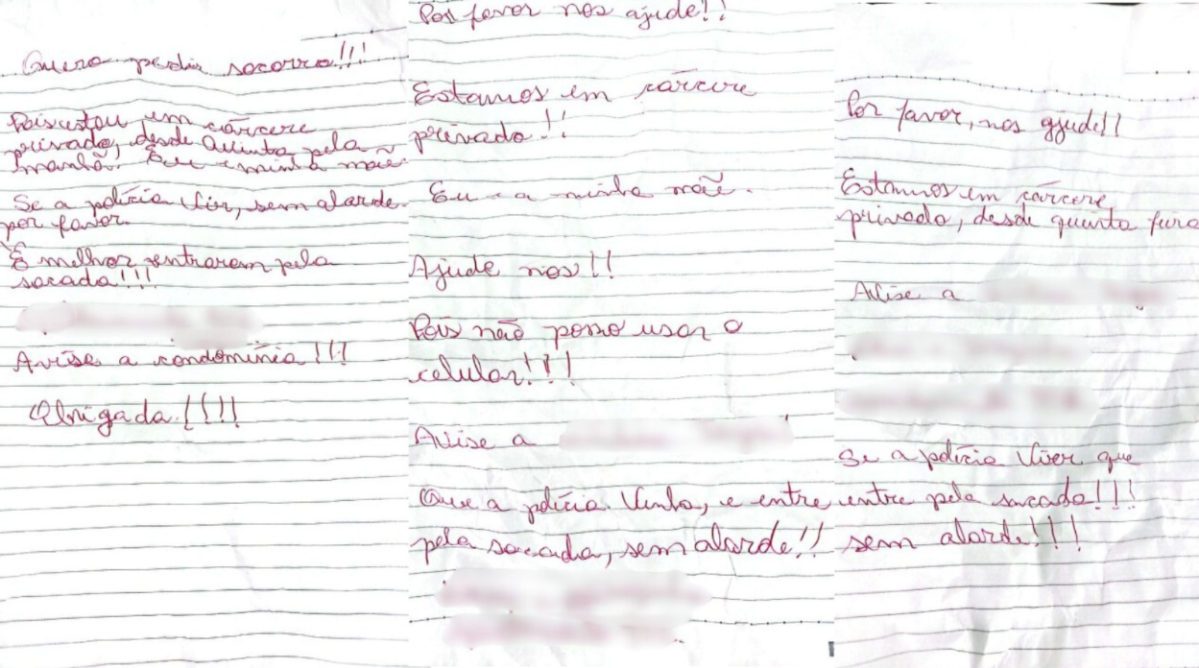 Quero pedir socorro!!!
Pois estou em cárcere
privado, desde Quinta pela
manhã. Eu e minha mãe.
Se a polícia vir, sem alarde
por favor.
É melhor entrarem pela
sacada!!!
Avise a condominia!!!
Obrigada!!!!
Por favor nos ajude!!
Estamos em cárcere
privado!!
Eu e a minha mãe.
Ajude nos!!
Pois não posso usar o
celular!!!
Avise a
Que a polícia Venha, e entre
pela sacada, sem alarde!!
Por favor, nos ajude!!
Estamos em cárcere
privado, desde quinta feira
Avise a
Se a polícia Vier que
entre pela sacada!!!
sem alarde!!!